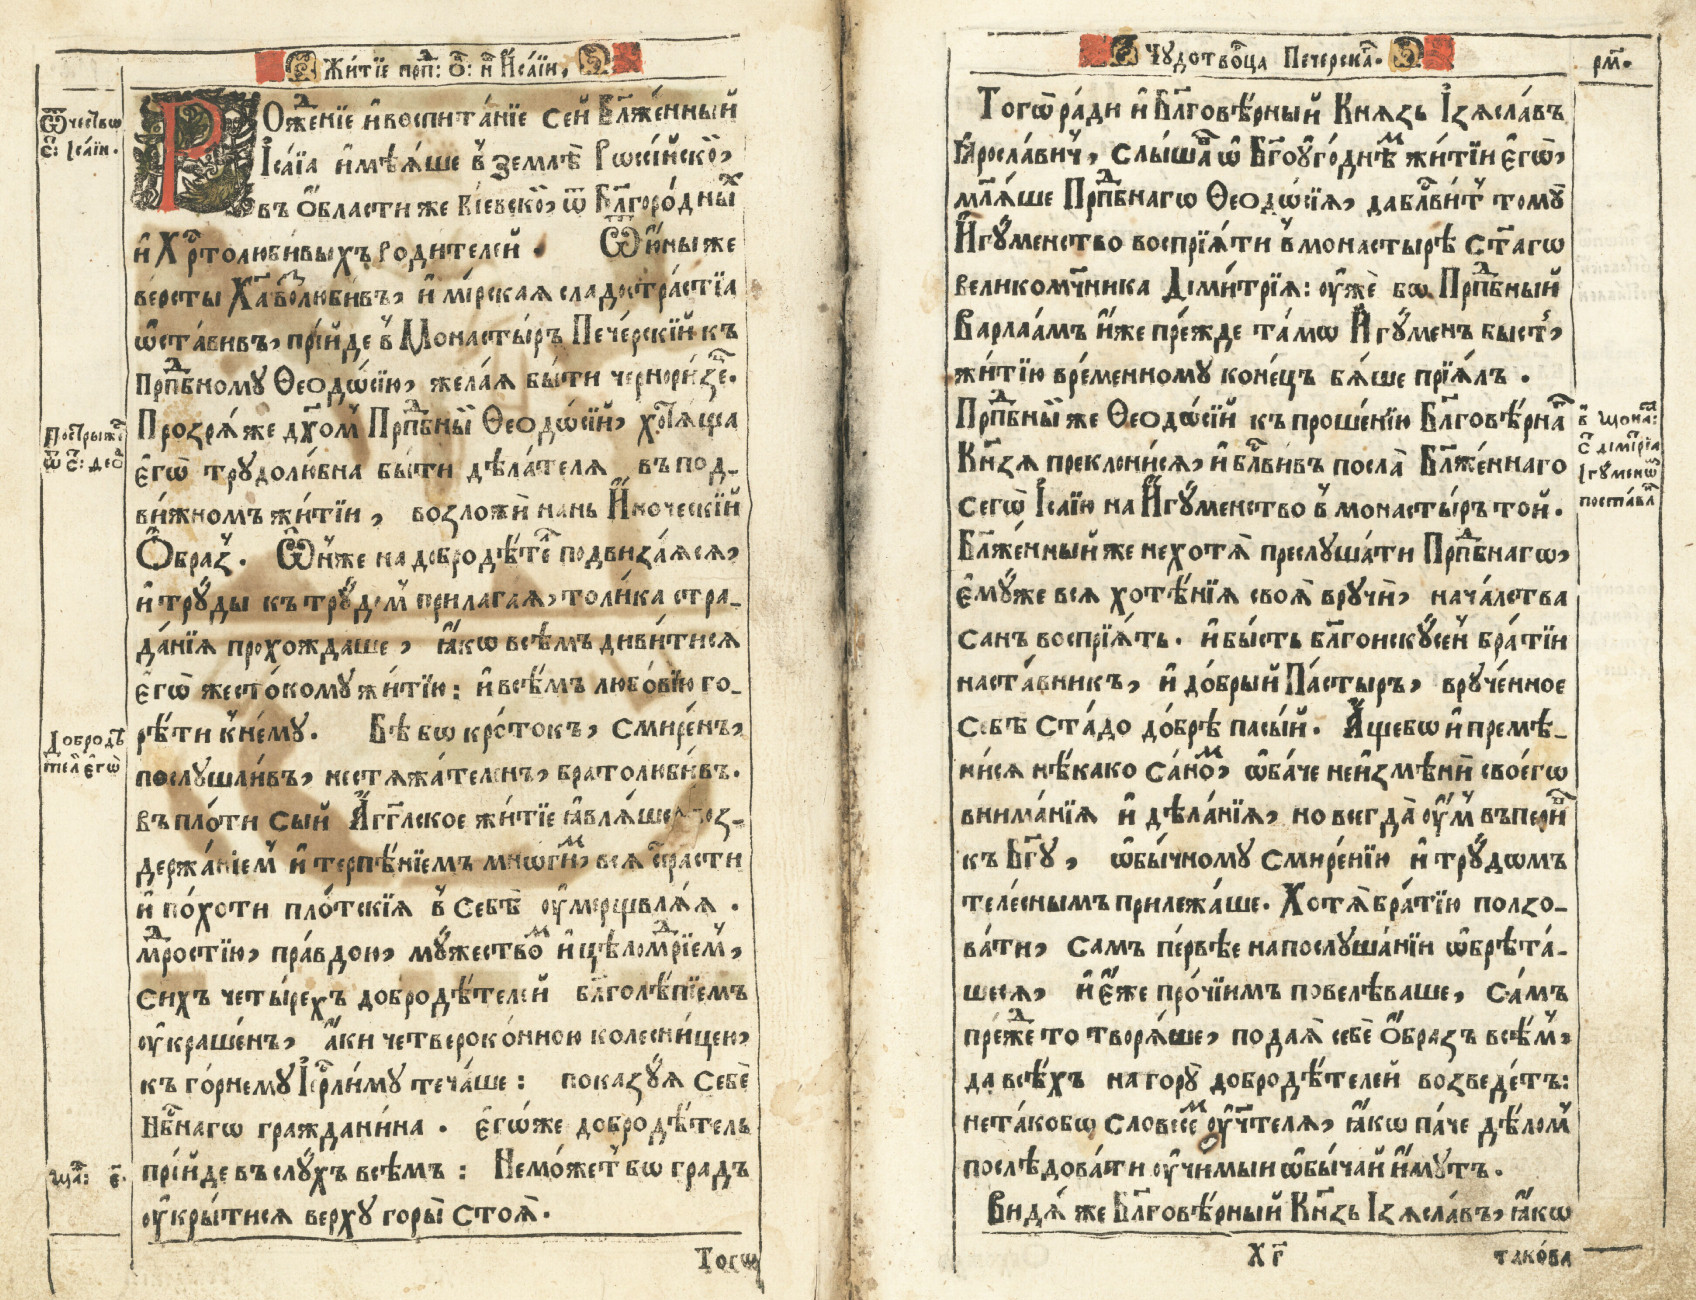 Житїе прпⷣ: ѿ: н҃ И҆са́їи,
Ѿе́чество
с҃: І҆са́їи.
Рожⷣе́нїе и҆ воспита́нїе се́й Бл҃же́нный
І҆са́їа и҆мѣ́ѧше в̾ землѣ̀ Рѡссі́йской,
въ О҆́бласти же Кі́евской, ѿ Бл҃горо́дныⷯ
и҆ Хрⷭ҇толюби́выхъ роди́телей. Ѿ ю҆́ны же
версты̀ Хрⷭ҇та̀ возлюби́въ, и҆ мі́рскаѧ сладостра́стїа
ѡ҆ста́вивъ, прі́йде в̾ Монасты́ръ Пече́рскїй къ
Прпⷣбному Ѳеодѡ́сїю, жела́ѧ бы́ти черноризе́цъ.
Постриже́сѧ
ѿ с҃: Ѳеоⷣ
Прозрѧ́ же дх҃ом̾ Прпⷣбный Ѳеодѡ́сїй, хотѧ́ща
є҆гѡ̀ трудоли́вна бы́ти дѣ́лателѧ въ под-
ви́жномъ жи́тїи, возложѝ на́нь И҆́ноческїй
О҆́браз̾. Ѿи́же на добродѣ́тели подвиза́ѧсѧ,
и҆ труды̀ къ трудо́м̾ прилага́ѧ, толи́ка стра-
да́нїѧ прохожда́ше, ꙗ҆́кѡ всѣ́мъ диви́тисѧ
є҆гѡ̀ жесто́кому жи́тїю: и҆ всѣ́мъ любо́вїю го-
рѣ́ти к̾ нему̀. Бѣ̀ бѡ кро́токъ, смире́нъ,
Добродѣ́-
тели є҆гѡ̀
послушли́въ, нестѧжа́теленъ, братолюби́въ.
въ пло́ти сы́й А҆́гг҃лское жи́тїе ꙗ҆влѧ́ше, воз-
держа́нїем̾ и҆ терпѣ́нїемъ мно́гиⷨ, всѧ̀ стра́сти
и҆ по́хоти пло́тскїѧ в̾ себѣ̀ оу҆мерщвлѧ́ѧ.
мⷣростїю, пра́вдою, му́жествоⷨ и҆ цѣломⷣрїем̾,
си́хъ четы́рехъ добродѣ́телей бл҃голѣ́пїемъ
оу҆краше́нъ, а҆́ки четвероко́нною колесни́цею,
къ го́рнему І҆ерⷭ҇ли́му теча́ше: показу́ѧ себѐ
Нбⷭ҇наго граждани́на. є҆гѡ́же добродѣ́тель
Щаⷭ҇: є҃.
прі́йде въ слу́хъ всѣ́мъ: Не мо́жет̾ бѡ гра́дъ
оу҆кры́тисѧ верху̀ горы̀ стоѧ̀.
Тогѡ̀
Чудотво́рца Пече́рскаⷢ.
рм҃.
Тогѡ̀ ра́ди и҆ Бл҃говѣ́рный Кнѧ́зь І҆зѧсла́въ
Ꙗ҆росла́вич̾, слы́шав̾ ѡ҆ Бг҃оуго́днѣⷨ жи́тїи є҆гѡ̀,
молѧ́ше Прпⷣбнагѡ Ѳеодѡ́сїѧ, да бл҃ви́т̾ тому̀
И҆гу́менство воспрїѧ́ти в̾ монастырѣ̀ ст҃агѡ
великомч҃ника Дїми́трїѧ: оу҆жѐ бѡ Прпⷣбный
Варлаа́мъ и҆́же пре́жде та́мѡ И҆гу́менъ бы́ст̾,
жи́тїю вре́менному коне́цъ бѧ́ше прїѧ́лъ.
Прпⷣбный же Ѳеодѡ́сїй къ проше́нїю Бл҃говѣ́рнаⷢ
в̾ Мона:
с҃ Дїми́трїа
І҆гу́меном
поста́влен
Кн҃зѧ преклони́сѧ, и҆ бл҃ви́въ посла̀ Бл҃же́ннаго
сегѡ̀ І҆са́їю на И҆гу́менство в̾ монасты́ръ то́й.
Бл҃же́нный же не хотѧ̀ преслуша́ти Прпⷣбнагѡ,
є҆му́же всѧ̀ хотѣ́нїѧ своѧ̀ вручѝ, нача́лства
са́нъ воспрїѧ́тъ. и҆ бы́сть бл҃гоиску́сен̾ бра́тїи
наста́вникъ, и҆ до́брый Па́стыръ, вруче́нное
себѣ̀ ста́до до́брѣ пасы́й. А҆́ще бѡ и҆ премѣ-
ни́сѧ нѣ́како са́ноⷨ, ѡ҆ба́че не и҆змѣнѝ своегѡ̀
внима́нїѧ и҆ дѣ́ланїѧ, но всегда̀ оу҆́м̾ въпере́н̾
къ Бг҃у, ѡ҆бы́чному смире́нїю и҆ трудѡ́мъ
теле́снымъ прилежа́ше. Хотѧ̀ бра́тїю ползо-
ва́ти, са́мъ пе́рвѣе на послуша́нїи ѡ҆брѣта́-
шесѧ, и҆ є҆́же про́чїимъ повелѣва́ше, са́мъ
пре́жⷣе то творѧ́ше, подаѧ̀ себѐ О҆́бразъ всѣ́м̾,
да всѣ́хъ на гору̀ добродѣ́телей возведе́тъ:
не та́ко бѡ словесе́ⷨ оу҆чи́телѧ, ꙗ҆́кѡ па́че дѣ́лом̾
послѣ́довати оу҆чи́мыи ѡ҆бы́чай и҆́мутъ.
Ви́дѧ же Бл҃говѣ́рный Кн҃зь І҆зѧсла́въ, ꙗ҆́кѡ
Х г҃
такова̀